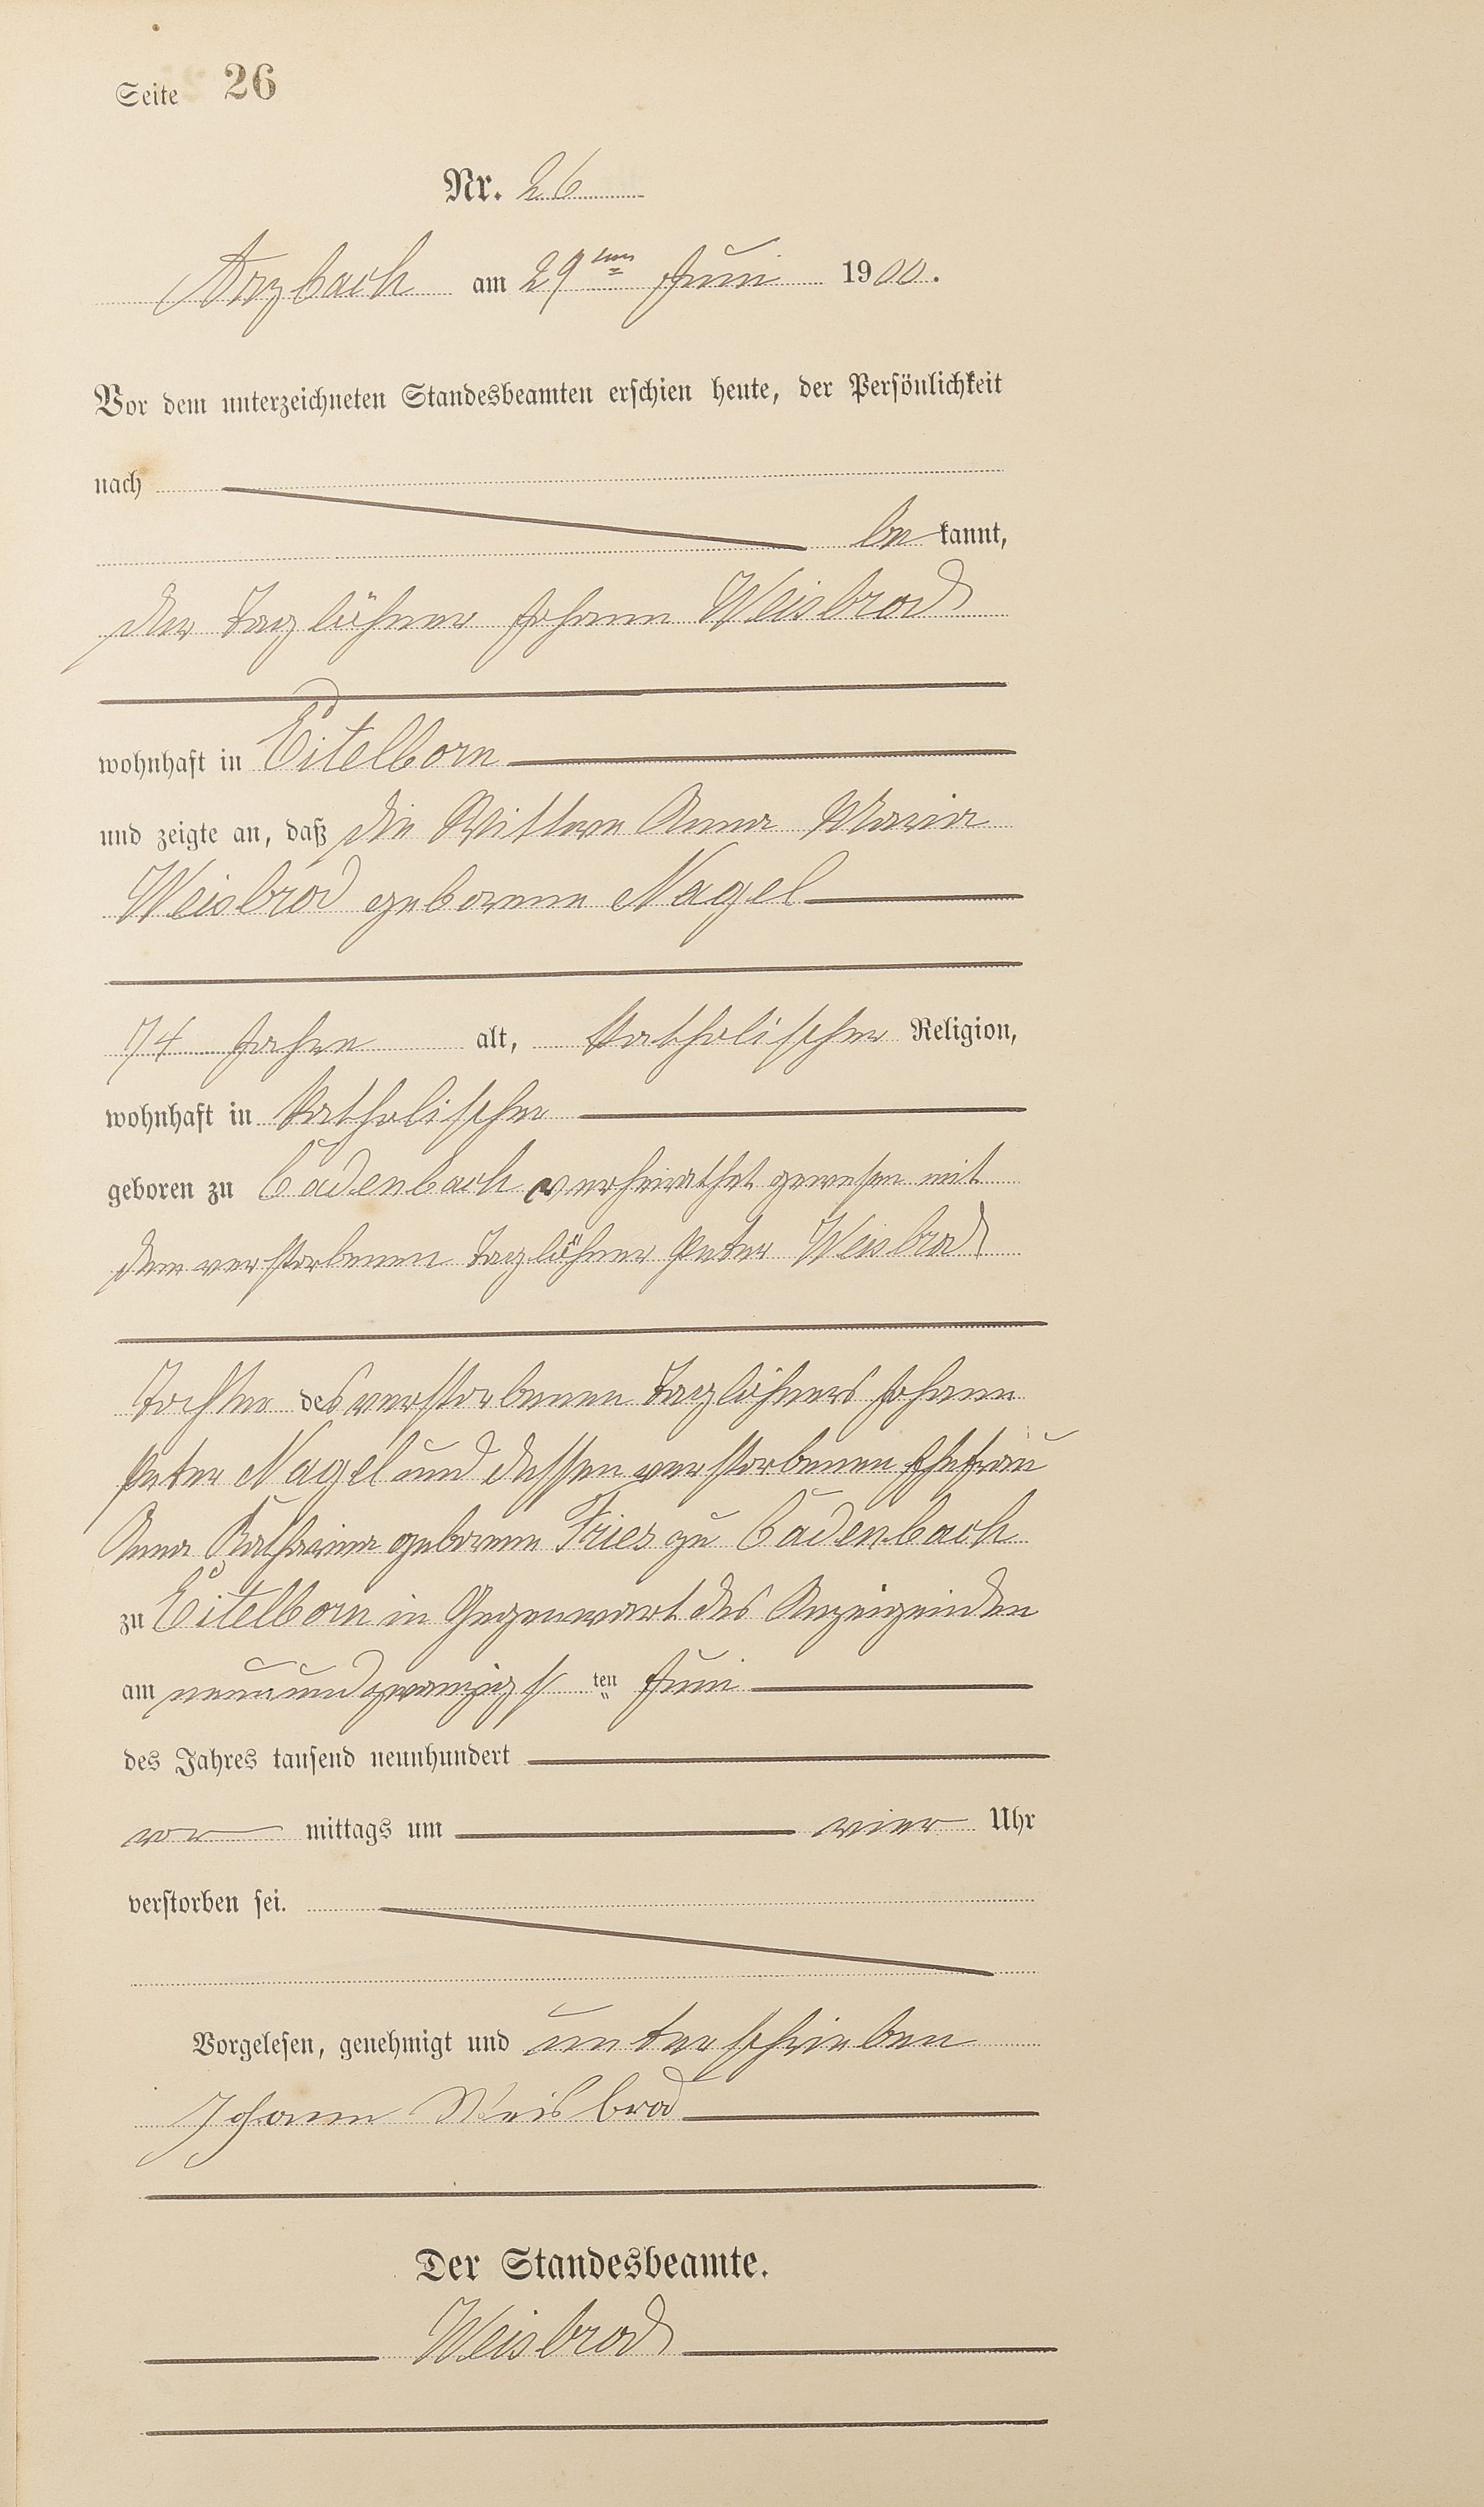 Seite 26
Nr. 26
Arzbach am 29ten Juni 1900.
Vor dem unterzeichneten Standesbeamten erschien heute, der Persönlichkeit
nach
be kannt,
der Taglöhner Johann Weisbrod
wohnhaft in Eitelborn
und zeigte an, daß die Wittwe Anna Maria
Weisbrod geborene Nagel
74 Jahre alt, katholischer Religion,
wohnhaft in katholischer
geboren zu Cadenbach verheirathet gewesen mit
dem verstorbenen Taglöhner Peter Weisbrod
Tochter des verstorbenen Taglöhners Johann
Peter Nagel und dessen verstorbenen Ehefrau
Anna Katharina geborene Fries zu Cadenbach
zu Eitelborn in Gegenwart des Anzeigenden
am neunundzwanzigs ten Juni
des Jahres tausend neunhundert
vor mittags um vier Uhr
verstorben sei.
Vorgelesen, genehmigt und unterschrieben
Johann Weisbrod
Der Standesbeamte.
Weisbrod